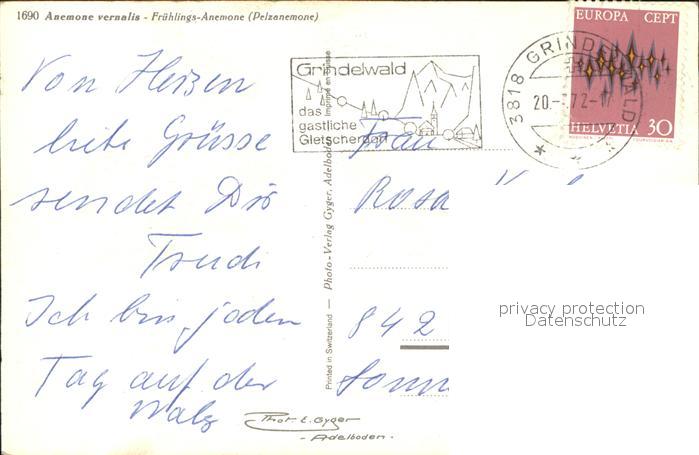 1690 Anemone vernalis - Frühlings-Anemone (Pelzanemone)
Von Herzen
liebe Grüsse
sendet Dir
Trudi
Ich bin jeden
Tag auf der
Walz
Phot. E. Gyger
- Adelboden -
Printed in Switzerland — Photo-Verlag Gyger, Adelboden
Imprimé en Suisse
Grindelwald
das
gastliche
Gletscherdorf
3818 GRINDELWALD
EUROPA CEPT
HELVETIA 30
Frau
Rosa
842
privacy protection
Datenschutz